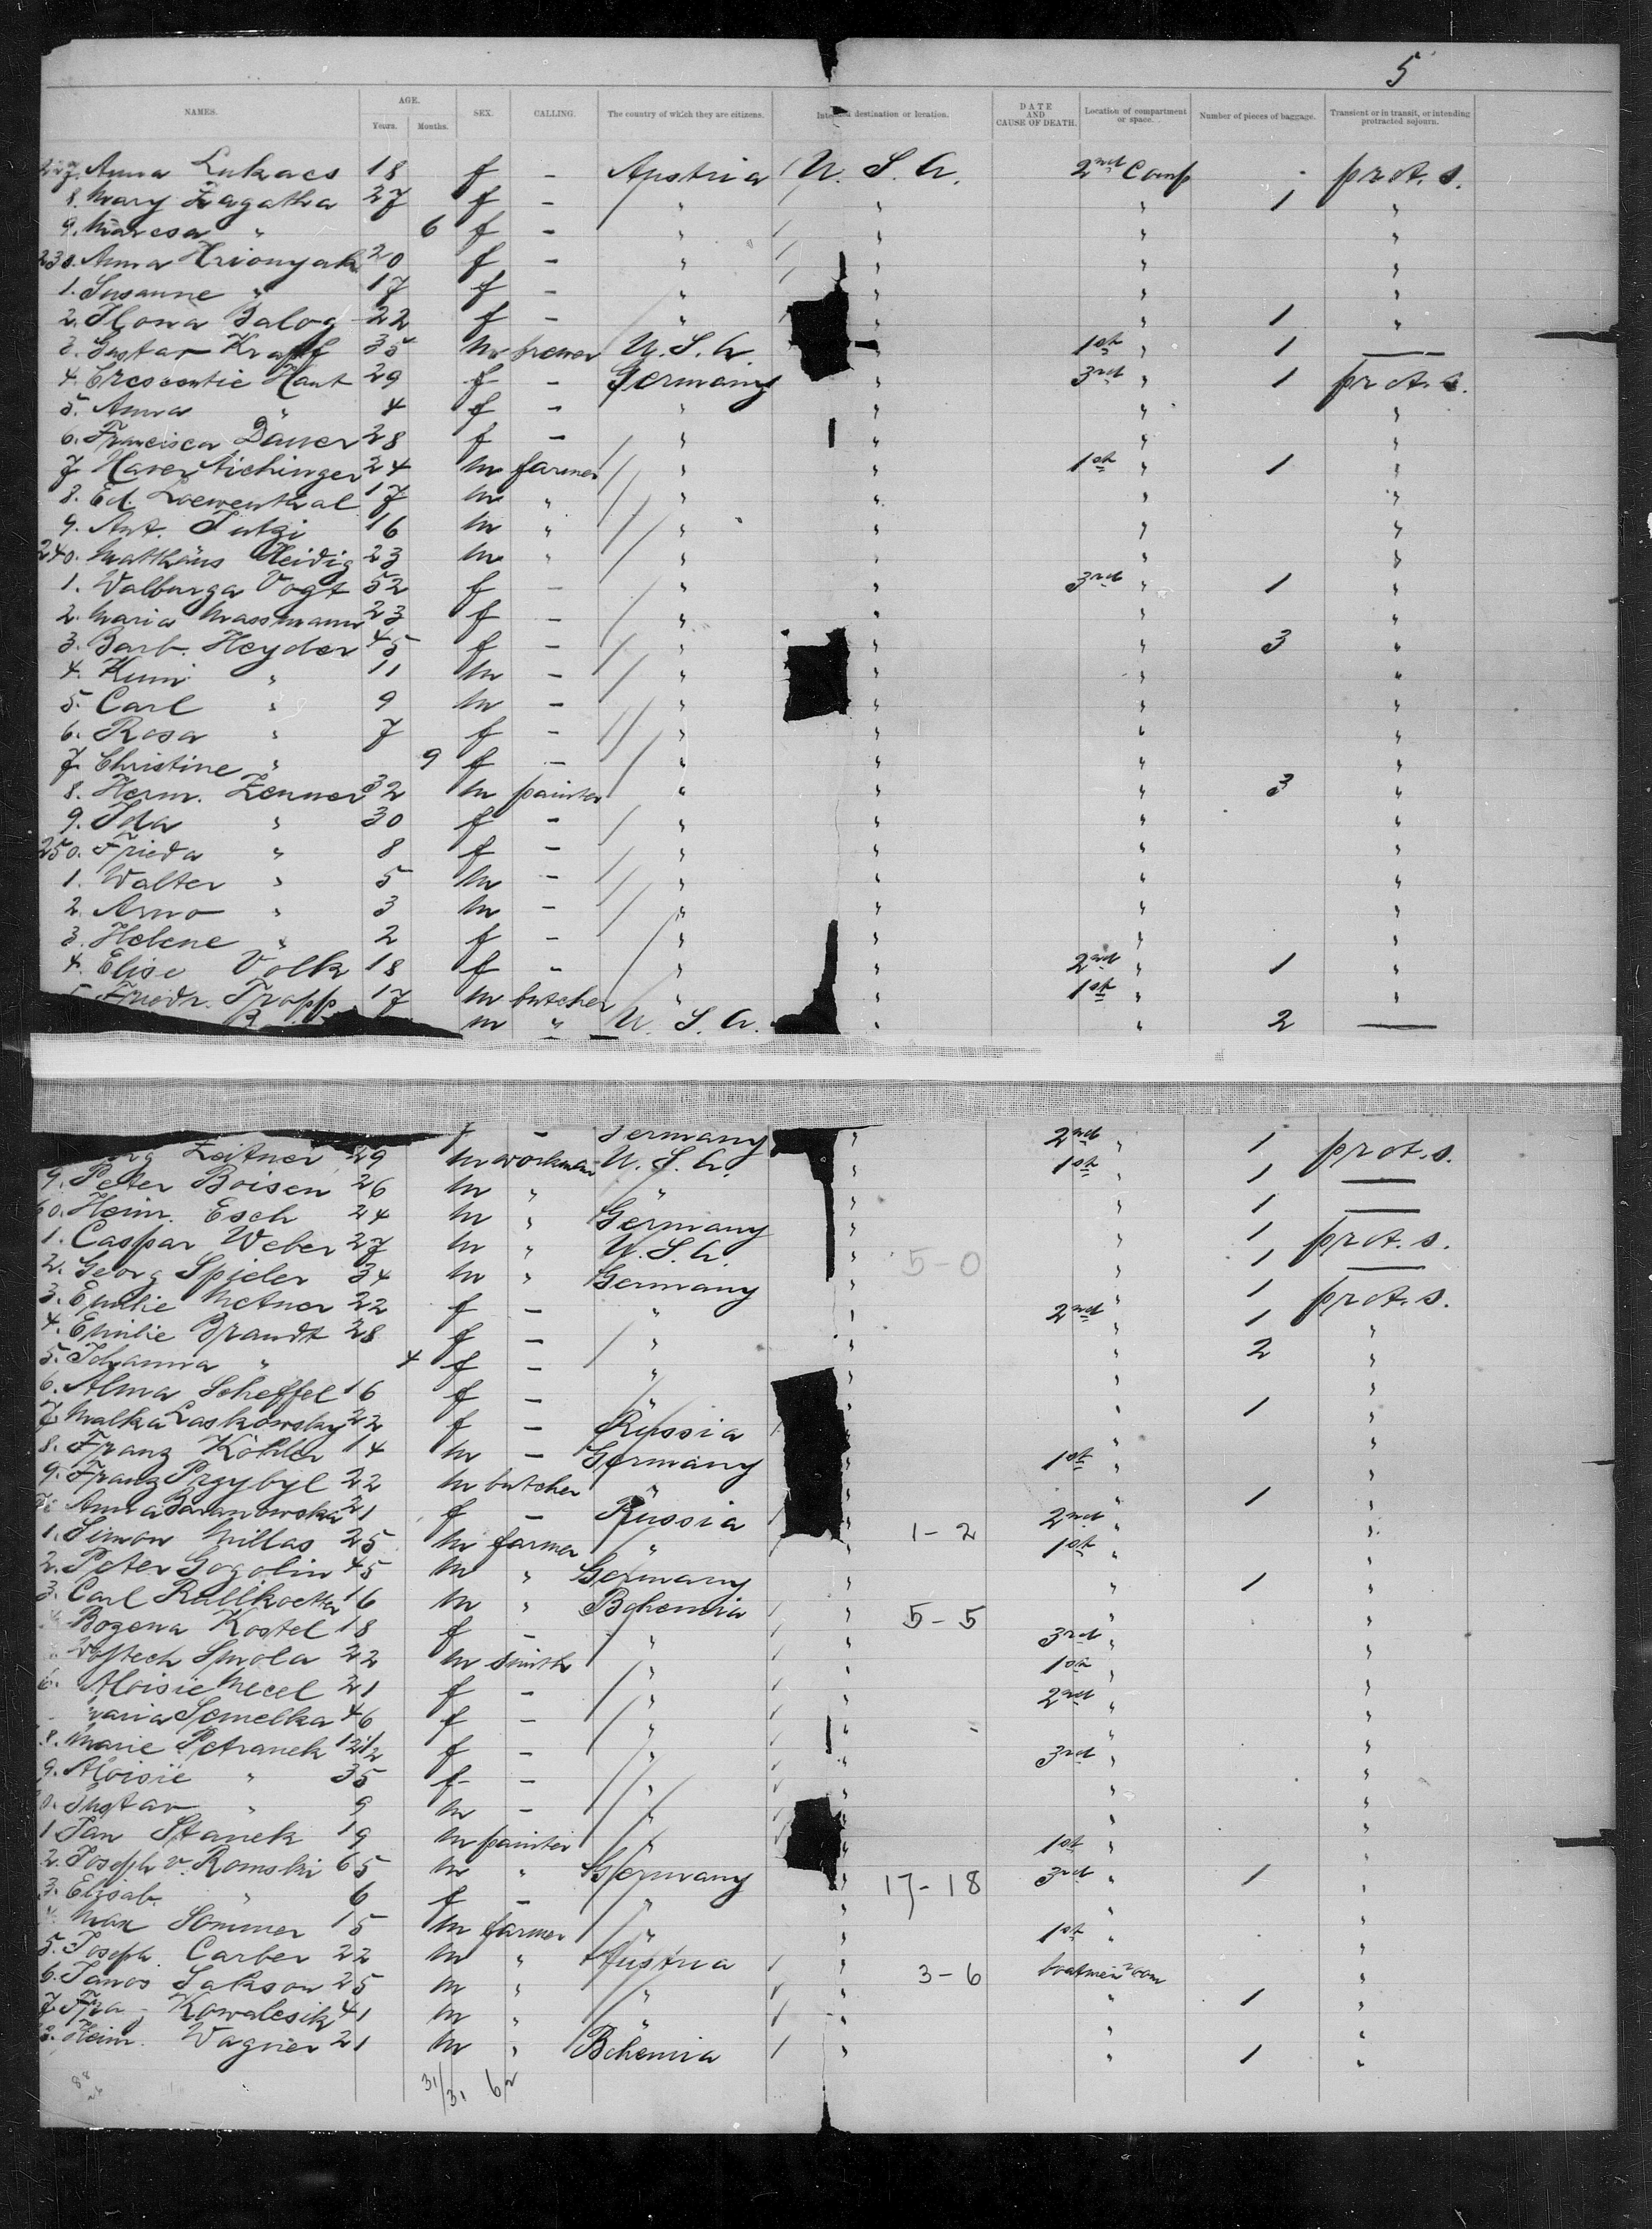 5
NAMES. AGE. Years. Months. SEX. CALLING. The country of which they are citizens. Intended destination or location. DATE AND CAUSE OF DEATH. Location of compartment or space. Number of pieces of baggage. Transient or in transit, or intending protracted sojourn.
227. Anna Lukacs 18 f - Austria U. S. A. 2nd Comp - prot. s.
8. Mary Zagatha 27 f - " " " 1 "
9. " 6 f - " " " "
230. Anna 20 f - " " " "
1. Susanne " 17 f - " " " "
2. Ilona Balog 22 f - " " " 1 "
3. Gustav Krapf 35 m brewer U. S. A. " 1st " 1 —
4. Haut 29 f - Germany " 3rd " 1 prot. s.
5. Anna " 4 f - " " " "
6. Francisca Dauer 28 f - " " " "
7. Xaver Aichinger 24 m farmer " " 1st " 1 "
8. Ed. Loewenthal 17 m " " " " "
9. Ant. 16 m " " " " "
240. Matthäus Heidig 23 m " " " " "
1. Walburga Vogt 52 f - " " 3rd " 1 "
2. Maria Massmann 23 f - " " " "
3. Barb. Heyder 45 f - " " " 3 "
4. Kuni " 11 m - " " " "
5. Carl " 9 m - " " " "
6. Rosa " 7 f - " " " "
7. Christine " 9 f - " " " "
8. Herm. Zenner 32 m painter " " " 3 "
9. Ida " 30 f - " " " "
250. Frieda " 8 f - " " " "
1. Walter " 5 m - " " " "
2. Arno " 3 m - " " " "
3. Helene " 2 f - " " " "
4. Elise Volk 18 f - " " 2nd " 1 "
5. Friedr. Tropp 17 m butcher " " 1st " "
m " U. S. A. " " 2 —
f - Germany " 2nd " 1 prot. s.
Zeitner 29 m workman U. S. A. " 1st " 1 —
9. Peter Boisen 26 m " " " " 1 —
60. Heinr. Esch 24 m " Germany " " 1 prot. s.
1. Caspar Weber 27 m " U. S. A. " " 1 —
2. Georg Spieler 34 m " Germany " 5-0 " 1 prot. s.
3. Emilie Metner 22 f - " " 2nd " 1 "
4. Emilie Brandt 28 f - " " " 2 "
5. Johanna " 4 f - " " " "
6. Alma Scheffel 16 f - " " " 1 "
7. Malka Laskowsky 22 f - Russia " " "
8. Franz Köhler 14 m - Germany " 1st " "
9. Franz Przybyl 22 m butcher " " " 1 "
70. Anna Baranowska 21 f - Russia " 1-2 2nd " "
1. Simon Millas 25 m farmer " " 1st " "
2. Peter Gogolin 45 m " Germany " " 1 "
3. Carl 16 m " Bohemia " 5-5 " "
Bozena Kostel 18 f - " " 3rd " "
Smola 22 m smith " " 1st " "
6. Aloisie Mecel 21 f - " " 2nd " "
Maria Semelka 46 f - " " - " "
8. Marie Petranek f - " " 3rd " "
9. Aloisie " 35 f - " " " "
0. Gustav " 9 m - " " " "
1 Jan Stanek 19 m painter " " 1st " "
2. Joseph v. Romski 65 m " Germany " 17-18 3rd " 1 "
3. Elisab. " 6 f - " " " "
Max Sommer 15 m farmer " " 1st " "
5. Joseph Carber 22 m " Austria " "
6. Janos Sakson 25 m " " " 3-6 boatmen room "
7. Kowalesik 41 m " " " " 1 "
8. Heinr. Wagner 21 m " Bohemia " " 1 "
31/31